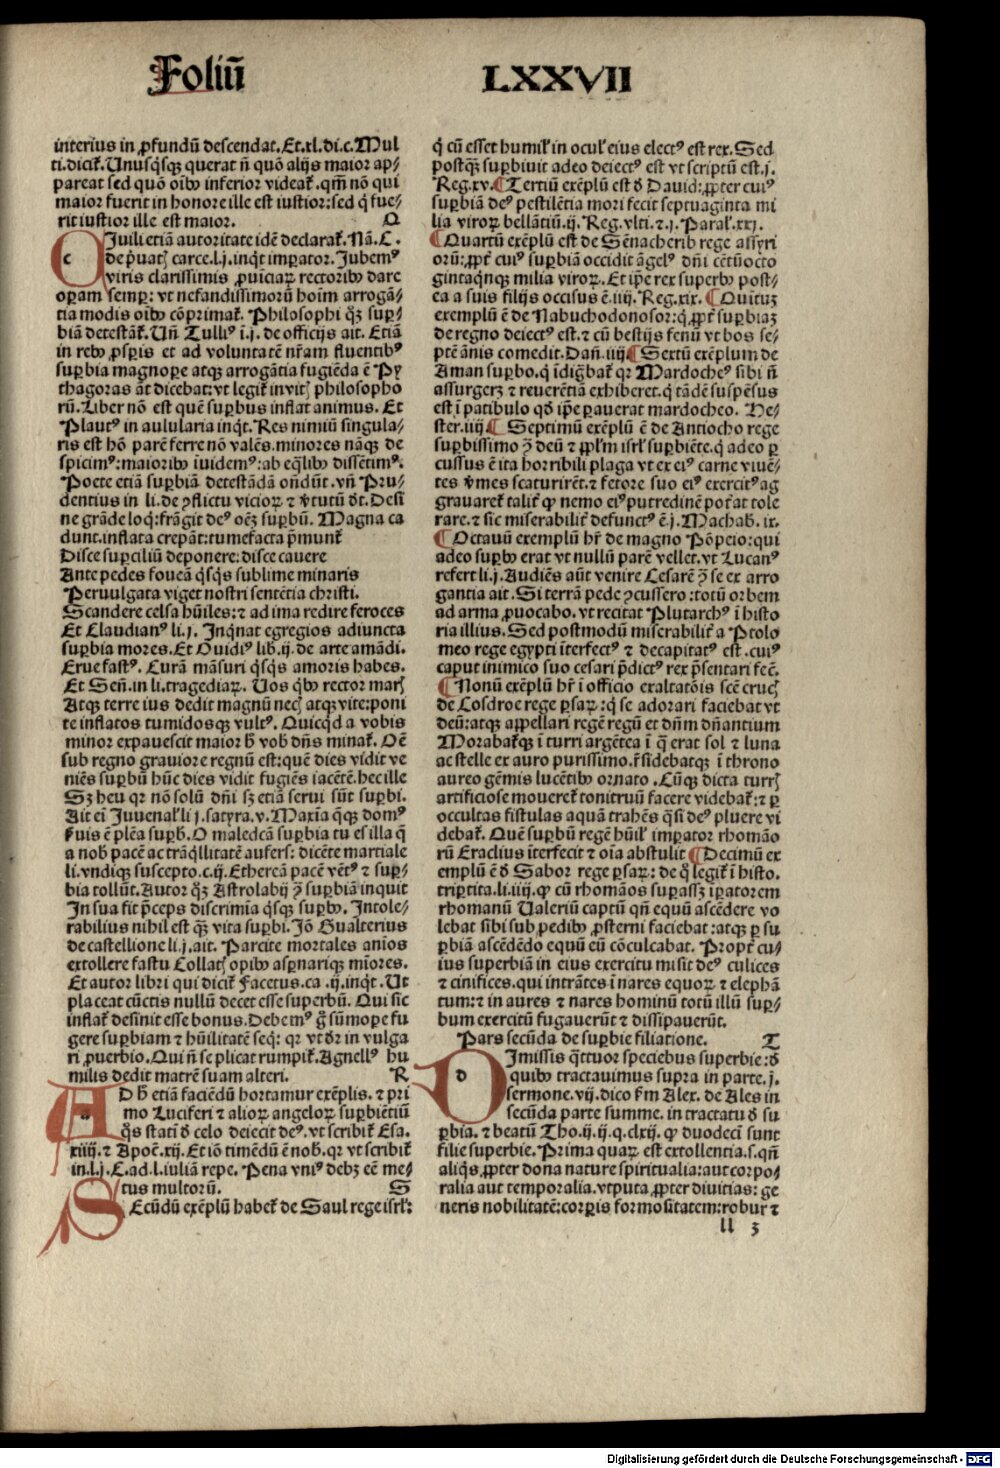 Foliū LXXVII
interius in ꝓfundū descendat. Et.xl.di.c. Mul
ti.dicit̄. Unusq̇sqꝫ querat n̄ quō alijs maior ap⸗
pareat sed quō oīb⁹ inferior videat̄. qm̄ nō qui
maior fuerit in honore ille est iustior: sed q̇ fue⸗
rit iustior ille est maior. Q
CIuili etiā autoritate idē declarat̄. Nā. C.
de p̄uatꝭ carce.l.j. inq̇t imꝑator. Jubem⁹
viris clarissimis ꝓuīciaꝝ rectorib⁹ dare
oꝑam semꝑ: vt nefandissimorū hoīm arrogā⸗
tia modis oīb⁹ cōprimat̄. Philosophi qꝫ suꝑ⸗
biā detestāt̄. Un̄ Tulli⁹ ī.j. de officijs ait. Etiā
in reb⁹ ꝓsꝑis et ad voluntatē nr̄am fluentib⁹
suꝑbia magnoꝑe atqꝫ arrogātia fugiēda ē Py
thagoras āt dicebat: vt legit̄ in vitꝭ philosopho
rū. Liber nō est quē suꝑbus inflat animus. Et
Plaut⁹ in aulularia inq̇t. Res nimiū singula⸗
ris est hō parē ferre nō valēs. minores nāqꝫ de
spicim⁹: maiorib⁹ īuidem⁹: ab eq̄lib⁹ dissētim⁹.
Poete etiā suꝑbiā detestādā on̄dūt. vn̄ Pru⸗
dentius in li. de ꝯflictu vicioꝝ ⁊ v̄tutū d̄t. Desī
ne grāde loq̇: frāgit de⁹ oēꝫ suꝑbū. Magna ca
dunt. inflata crepāt: tumefacta p̄munt̄
Disce suꝑciliū deponere: disce cavere
Ante pedes foueā q̇sq̇s sublime minaris
Peruulgata viget nostri sentētia christi.
Scandere celsa hūiles: ⁊ ad ima redire feroces
Et Claudian⁹ li.j. Inq̇nat egregios adiuncta
suꝑbia mores. Et Ouidi⁹ lib.ij. de arte amādi.
Erue fast⁹. Curā māsuri q̇sq̇s amoris habes.
Et Sen̄. in li. tragediaꝝ. Uos q̇b⁹ rector marꝭ
Atqꝫ terre ius dedit magnū necꝭ atqꝫ vite: poni
te inflatos tumidosqꝫ vult⁹. Quicq̇d a vobis
minor expauescit maior h̄ vob̄ dn̄s minat̄. Oē
sub regno grauiore regnū est: quē dies vidit ve
niēs suꝑbū hūc dies vidit fugiēs iacētē. hec ille
Sꝫ heu qr nō solū dn̄i sꝫ etiā serui sūt suꝑbi.
Ait ei Juuenal̄ li j. satyra.v. Maxīa q̄qꝫ dom⁹
f̄uis ē plēa suꝑb̄. O maledcā suꝑbia tu es illa q̄
a nob̄ pacē ac trāq̇llitatē aufers: dicēte martiale
li. vndiqꝫ suscepto.c.ij. Ethereā pacē vēt⁹ ⁊ suꝑ⸗
bia tollūt. Autor qꝫ Astrolabij ꝯ̄ suꝑbiā inquit
In sua fit p̄ceps discrimīa q̇sqꝫ suꝑb⁹. Intole⸗
rabilius nihil est qꝫ vita suꝑbi. Jō Gualterius
de castellione li.j. ait. Parcite mortales anīos
extollere fastu Collatꝭ opib⁹ asꝑnariqꝫ mīores.
Et autor libri qui dicit̄ Facetus.ca.ij. inq̇t. Ut
placeat cūctis nullū decet esse superbū. Qui sic
inflat̄ desinit esse bonus. Debem⁹ g̊ sūmoꝑe fu
gere suꝑbiam ⁊ hūilitatē seq̇: qr vt d̄r in vulga
ri ꝓuerbio. Qui n̄ se plicat rumpit̄. Agnell⁹ hu
milis dedit matrē suam alteri. R
AD h̄ etiā faciēdū hortamur exēplis. ⁊ pri
mo Luciferi ⁊ alioꝝ angeloꝝ suꝑbiētiū
q̇s statī d̄ celo deiecit de⁹. vt scribit̄ Esa.
xiiij. ⁊ Apoc̄.xij. Et iō timēdū ē nob̄. qr vt scribit̄
in.l.j. C. ad.l. iuliā repe. Pena vni⁹ debꝫ eē me⸗
tus multorū. S
SEcūdū exēplū habet̄ de Saul rege isrl̄:
q̇ cū esset humil̄ in ocul̄ eius elect⁹ est rex. Sed
postqꝫ suꝑbiuit adeo deiect⁹ est vt scriptū est.j.
Reg.xv. ¶Tertiū exēplū est d̄ Dauid: ꝓpter cui⁹
suꝑbiā de⁹ pestilētia mori fecit septuaginta mi
lia viroꝝ bellātiū.ij. Reg. vlti. ⁊.j. Paral̄.xxj.
¶Quartū exēplū est de Sēnacherib rege assyri
orū: ꝓpt̄ cui⁹ suꝑbiā occidit āgel⁹ dn̄i cētūocto
gintaq̇nqꝫ milia viroꝝ. Et ip̄e rex superb⁹ post⸗
ea a suis filijs occisus ē.iiij. Reg.xix. ¶Quītuꝫ
exemplū ē de Nabuchodonosor: q̇ ꝓpt̄ suꝑbiaꝫ
de regno deiect⁹ est. ⁊ cū bestijs fenū vt bos se⸗
ptē ānis comedit. Dan̄.iiij. ¶Sextū exēplum de
Aman suꝑbo. q̇ īdig̊bat̄ qr Mardoche⁹ sibi n̄
assurgeꝫ ⁊ reuerētiā exhiberet. q̇ tādē suspēsus
est ī patibulo qd̄ ip̄e ꝑauerat mardocheo. He⸗
ster.iiij. ¶Septimū exēplū ē de Antiocho rege
suꝑbissimo ꝯ̄ deū ⁊ pp̄lm isrl̄ suꝑbiēte. q̇ adeo ꝑ
cussus ē ita horribili plaga vt ex ei⁹ carne viuē⸗
tes v̄mes scaturirēt. ⁊ fetore suo ei⁹ exercit⁹ ag
grauaret̄ talit̄ ꝙ nemo ei⁹ putredinē pot̄at tole
rare. ⁊ sic miserabilit̄ defunct⁹ ē.j. Machab̄.ix.
¶Octauū exemplū hr̄ de magno Pōpeio: qui
adeo suꝑb⁹ erat vt nullū parē vellet. vt Lucan⁹
refert li.j. Audiēs aūt venire Cesarē ꝯ̄ se ex arro
gantia ait. Si terrā pede ꝯcussero: totū orbem
ad arma ꝓuocabo. vt recitat Plutarch⁹ ī histo
ria illius. Sed postmodū miserabilit̄ a Ptolo
meo rege egypti īterfect⁹ ⁊ decapitat⁹ est. cui⁹
caput inimico suo cesari p̄dict⁹ rex p̄sentari fec̄.
¶Nonū exēplū hr̄ ī officio exaltatōis scē crucꝭ
de Cosdroe rege ꝑsaꝝ: q̇ se adorari faciebat vt
deū: atqꝫ appellari regē regū et dn̄m dn̄antium
Morabat̄qꝫ ī turri argētea ī q̄ erat sol ⁊ luna
ac stelle ex auro purissimo. r̄sidebatqꝫ ī throno
aureo gēmis lucētib⁹ ornato. Cūqꝫ dicta turrꝭ
artificiose moueret̄ tonitruū facere videbat̄: ⁊ ꝑ
occultas fistulas aquā trahēs q̄si de⁹ pluere vi
debat̄. Quē suꝑbū regē hūil̄ imꝑator rhomāo
rū Eraclius īterfecit ⁊ oīa abstulit ¶Decimū ex
emplū ē d̄ Sabor rege ꝑsaꝝ: de q̇ legit̄ ī histo.
triꝑtita.li.iiij. ꝙ cū rhomāos suꝑassꝫ īꝑatorem
rhomanū Ualeriū captū qn̄ equū ascēdere vo
lebat sibi sub pedib⁹ ꝓsterni faciebat: atqꝫ ꝑ su
ꝑbiā ascēdēdo equū eū cōculcabat. Propt̄ cu⸗
ius superbiā in eius exercitu misit de⁹ culices
⁊ cinifices. qui intrātes ī nares equoꝝ ⁊ elephā
tum: ⁊ in aures ⁊ nares hominū totū illū suꝑ⸗
bum exercitū fugauerūt ⁊ dissipauerūt.
Pars secūda de suꝑbie filiatione. T
DImissis q̄ttuor speciebus superbie: d̄
quib⁹ tractauimus supra in parte.j.
sermone.vij. dico f̄m Alex. de Ales in
secūda parte summe. in tractatu d̄ su
ꝑbia. ⁊ beatū Tho.ij.ij.q.clxij. ꝙ duodecī sunt
filie superbie. Prima quaꝝ est extollentia.s.qn̄
aliq̇s ꝓpter dona nature spiritualia: aut corpo⸗
ralia aut temporalia. vtputa ꝓpter diuitias: ge
neris nobilitatē: corꝑis formositatem: robur ⁊
ll 3
Digitalisierung gefördert durch die Deutsche Forschungsgemeinschaft - DFG